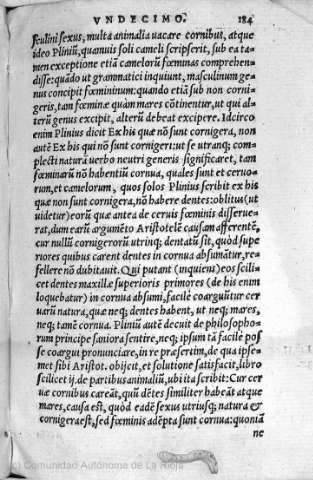 VNDECIMO. 184
sculini sexus, multa animalia uacare cornibus, atque
ideo Pliniũ, quamuis soli cameli scripserit, sub ea ta-
men exceptione etiã camelorũ fœminas comprehen-
disse: quãdo ut grammatici inquiunt, masculinum ge-
nus concipit fœmininum: quando etiã sub non corni-
geris, tam fœminæ quàm mares cõtinentur, ut qui al-
terũ genus excipit, alterũ debeat excipere. Idcirco
enim Plinius dicit Ex his quæ nõ sunt cornigera, non
autẽ Ex his qui nõ sunt cornigeri: ut se utranq; com-
plecti naturã uerbo neutri generis significaret, tam
fœminarũ nõ habentiũ cornua, quales sunt et ceruo-
rum, et camelorum, quos solos Plinius scribit ex his
quæ non sunt cornigera, nõ habere dentes: oblitus (ut
uidetur) eorũ quæ antea de ceruis fœminis disserue-
rat, dum earũ argumẽto Aristotelẽ causam afferentẽ,
cur nullũ cornigerorũ utrinq; dentatũ sit, quòd supe-
riores quibus carent dentes in cornua absumãtur, re-
fellere nõ dubitauit. Qui putant (inquiens) eos scili-
cet dentes maxillæ superioris primores (de his enim
loquebatur) in cornua absumi, facilè coarguũtur cer
uarũ natura, quæ neq; dentes habent, ut neq; mares,
neq; tamẽ cornua. Pliniũ autẽ decuit de philosopho-
rum principe saniora sentire, neq; ipsum tã facilè pos
se coargui pronunciare, in re præsertim, de qua ipse-
met sibi Aristot. obijcit, et solutione satisfacit, libro
scilicet iij. de partibus animaliũ, ubi ita scribit: Cur cer
uæ cornibus careãt, quũ dẽtes similiter habeãt atque
mares, causa est, quòd eadẽ sexus utriusq; natura &
cornigera est, sed fœminis adẽpta sunt cornua: quoniã
ne
(c) Comunidad Autónoma de La Rioja